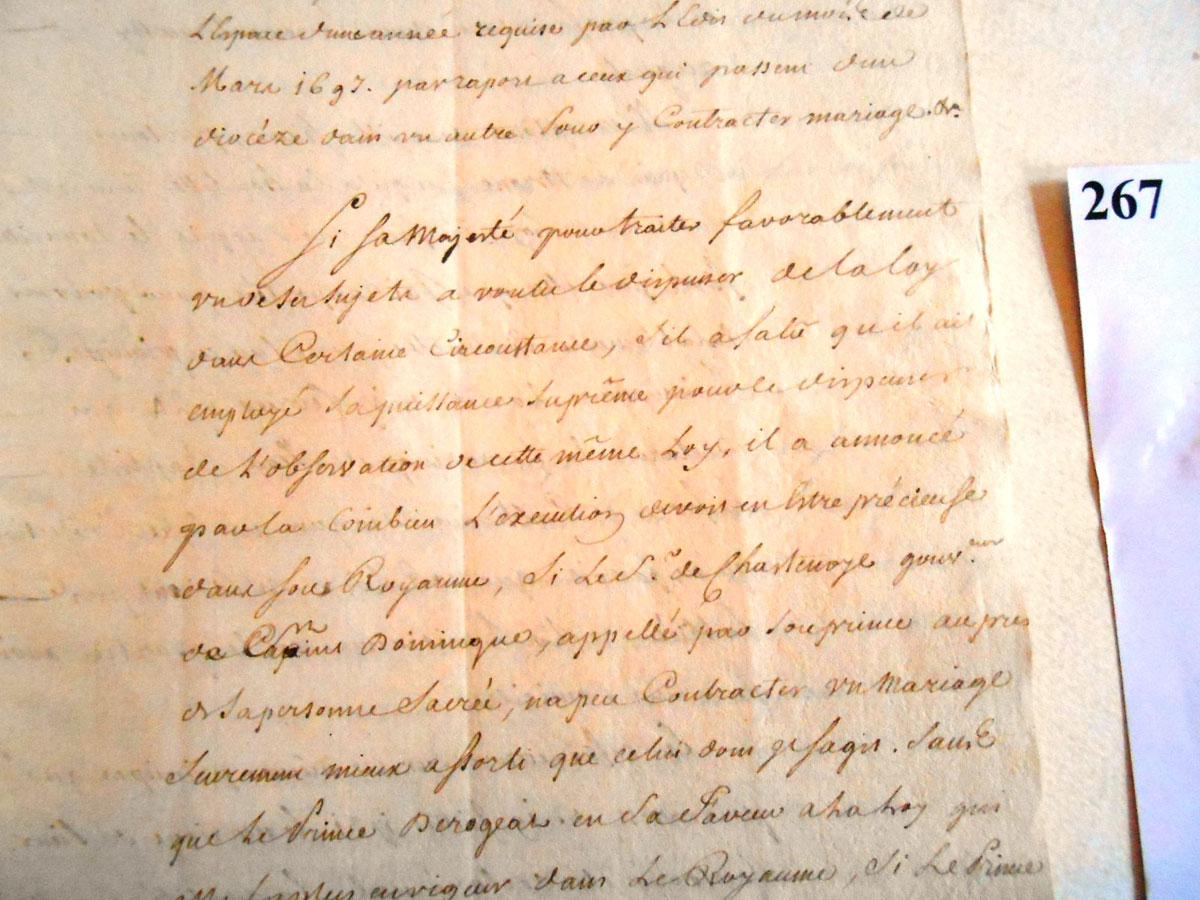 L'Espace d'une année requise par L'Edit du mois de
Mars 1697. par raport a ceux qui passent d'un
diocéze dans un autre pour y Contracter mariage. &a.
267
Si sa Majesté pour traiter favorablement
un de ses sujets a voulu le dispenser de la loy
dans Certaine Circonstance, s'il a falu qu'il ait
employé sa puissance suprême pour le dispenser
de L'observation de cette même Loy, il a annoncé
par la Combien L'execution devoit en Etre précieuse
dans son Royaume, Si Le Sr. de Chastenoye gouvr.neur
de St Domingue, appellé par son prince au pres
de sa personne Sacrée, na peu Contracter un Mariage
Surement mieux assorti que celui dont il sagit. Sans
que Le Prince Derogeat en Sa Faveur a La Loy qui
en vigueur dans Le Royaume, Si Le Prince